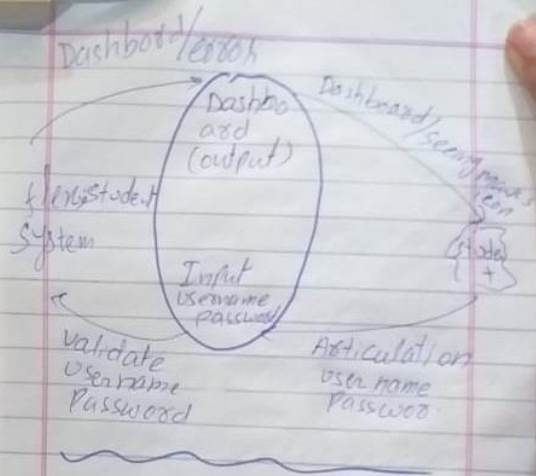 Dashbord/error
Dashbo
ard
(output)
Dashboard/seeing
Student
System
Input
username
password
Validate
username
Password
Articulation
user name
Passwoo